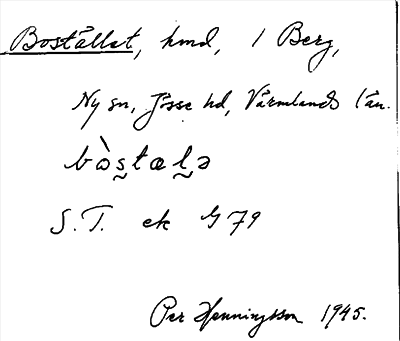 Boställat, hmd, i Berg,
Ny sn, Jösse hd, Värmlands län.
bòs̰tæl̰ə
S.T. ek G 79
Per Henningsson 1945.